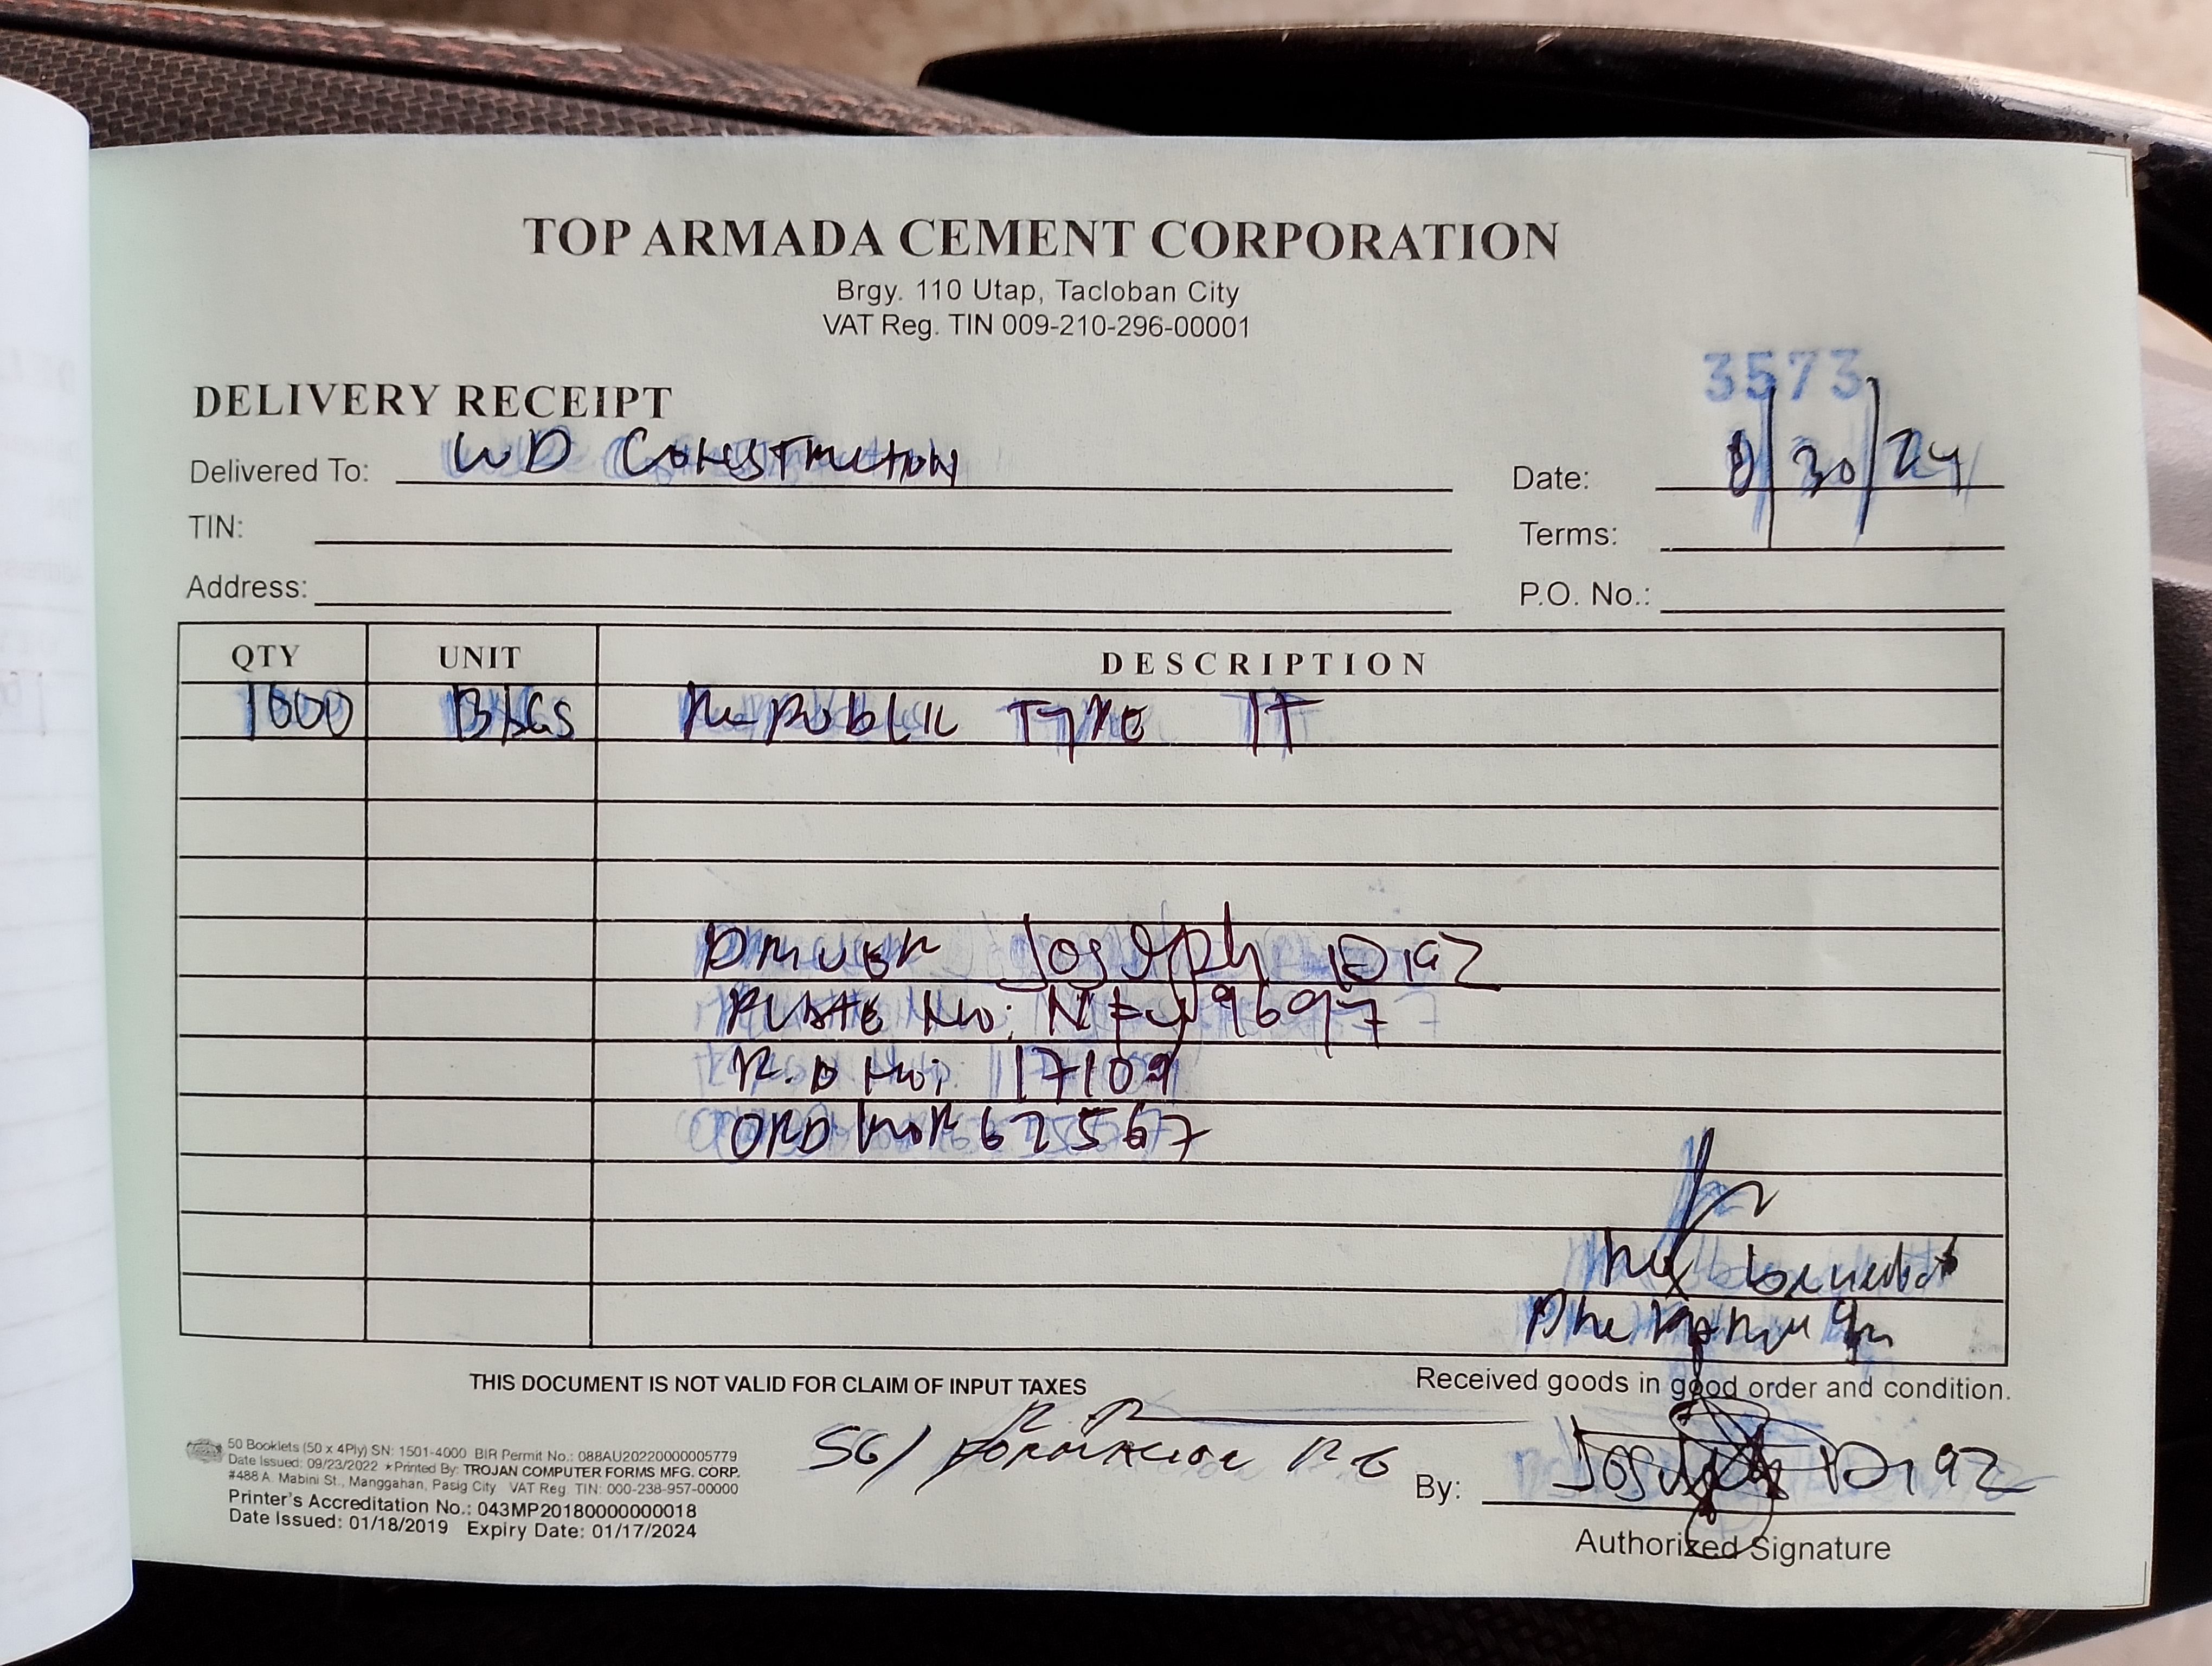 TOP ARMADA CEMENT CORPORATION
Brgy. 110 Utap, Tacloban City
VAT Reg. TIN 009-210-296-00001
3573
DELIVERY RECEIPT
Delivered To: WD Construction
Date: 8/30/24
TIN:
Terms:
Address:
P.O. No.:
QTY UNIT DESCRIPTION
1000 BAGS Republic Type IT
Driver Joseph Diaz
Plate No: 9697
R.D No: 17109
ORD 62567
Received goods in good order and condition.
THIS DOCUMENT IS NOT VALID FOR CLAIM OF INPUT TAXES
SG/
By: Joseph Diaz
Authorized Signature
50 Booklets (50 x 4Ply) SN: 1501-4000 BIR Permit No.: 088AU20220000005779
Date Issued: 09/23/2022 ★Printed By: TROJAN COMPUTER FORMS MFG. CORP.
#488 A. Mabini St., Manggahan, Pasig City VAT Reg. TIN: 000-238-957-00000
Printer's Accreditation No.: 043MP20180000000018
Date Issued: 01/18/2019 Expiry Date: 01/17/2024